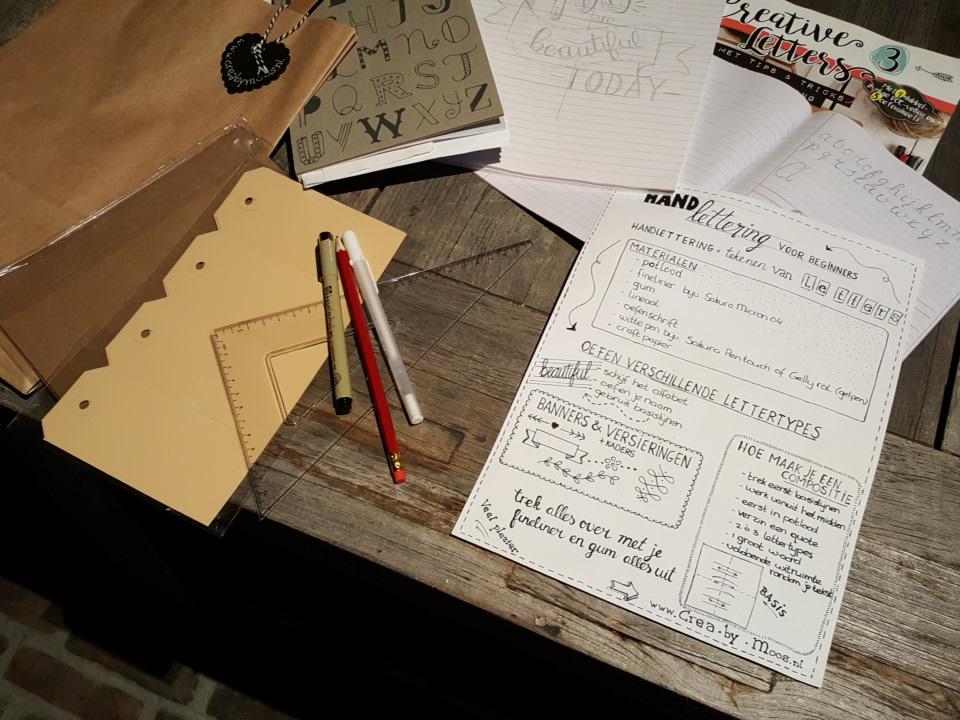 Creative
Letters
3
MET TIPS & TRICKS
H I J
M N O
P Q R S T
U V W X Y Z
YOU
are
beautiful
TODAY
a b c d e f g h i j k l m n
p q r s t u v w x y z
HAND lettering VOOR BEGINNERS
HANDLETTERING = tekenen van Letters
MATERIALEN
- potlood
- fineliner bijv Sakura Micron 04
- gum
- lineaal
- oefenschrift
- witte pen bijv Sakura Pentouch of Gelly rol (gelpen)
- craftpapier
OEFEN VERSCHILLENDE LETTERTYPES
beautiful
- schrijf het alfabet
- oefen je naam
- gebruik basislijnen
BANNERS & VERSIERINGEN
+ KADERS
HOE MAAK JE EEN
COMPOSITIE
- trek eerst basislijnen
- werk vanuit het midden
- eerst in potlood
- verzin een quote
- 2 à 3 lettertypes
- 1 groot woord
- voldoende witruimte
rondom je tekst
BASIS
trek alles over met je
fineliner en gum alles uit
Veel plezier
www.Crea.by.Moos.nl